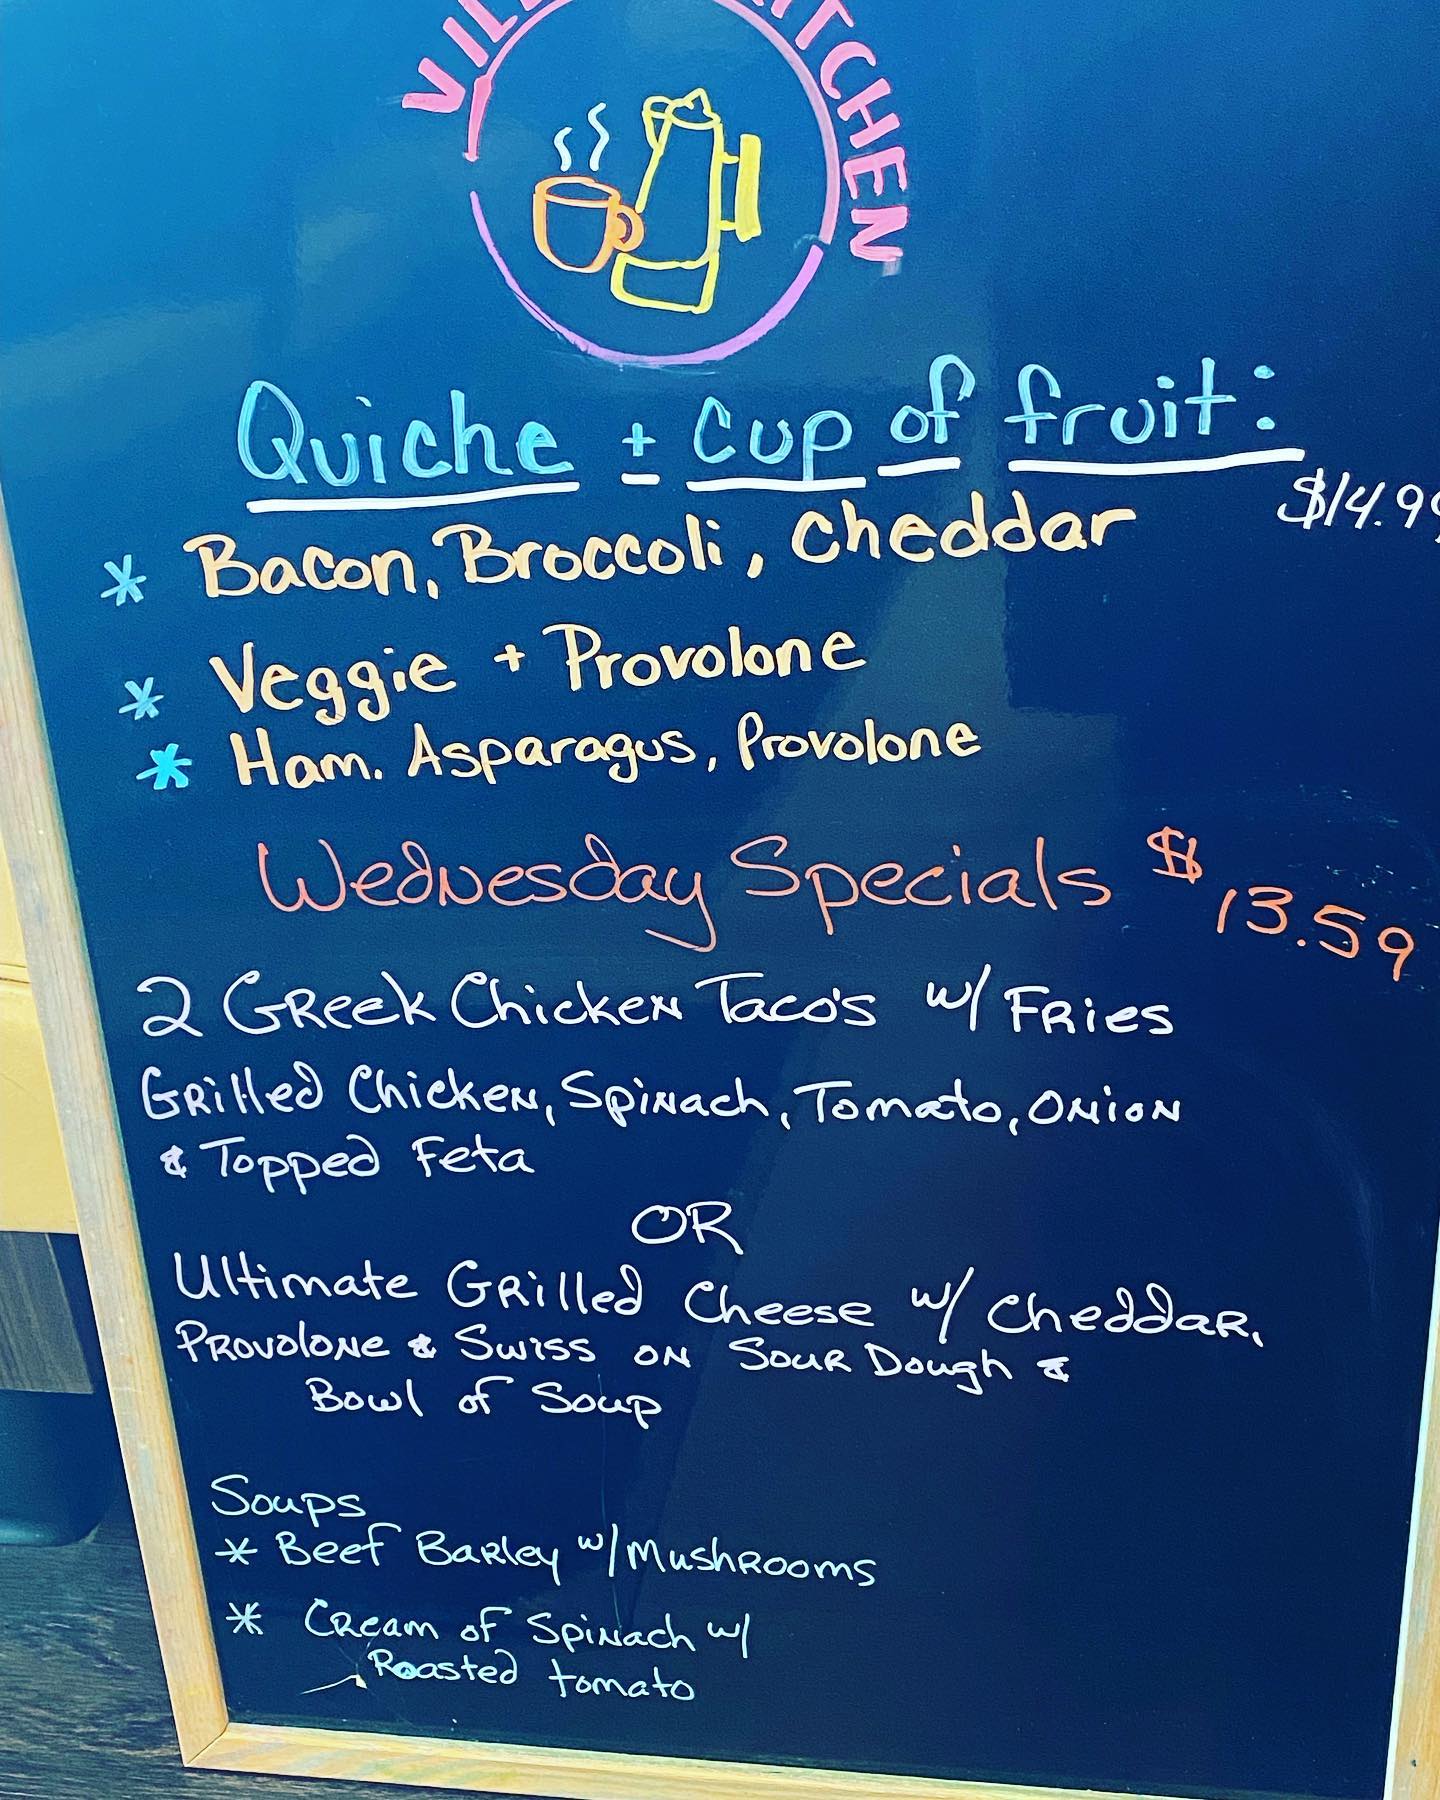 KITCHEN
Quiche + cup of fruit:
$14.99
* Bacon, Broccoli, Cheddar
* Veggie + Provolone
* Ham. Asparagus, Provolone
Wednesday Specials $13.59
2 Greek Chicken Taco's w/ Fries
Grilled Chicken, Spinach, Tomato, Onion
& Topped Feta
OR
Ultimate Grilled Cheese w/ Cheddar,
Provolone & Swiss on Sour Dough &
Bowl of Soup
Soups
* Beef Barley w/ Mushrooms
* Cream of Spinach w/
Roasted tomato